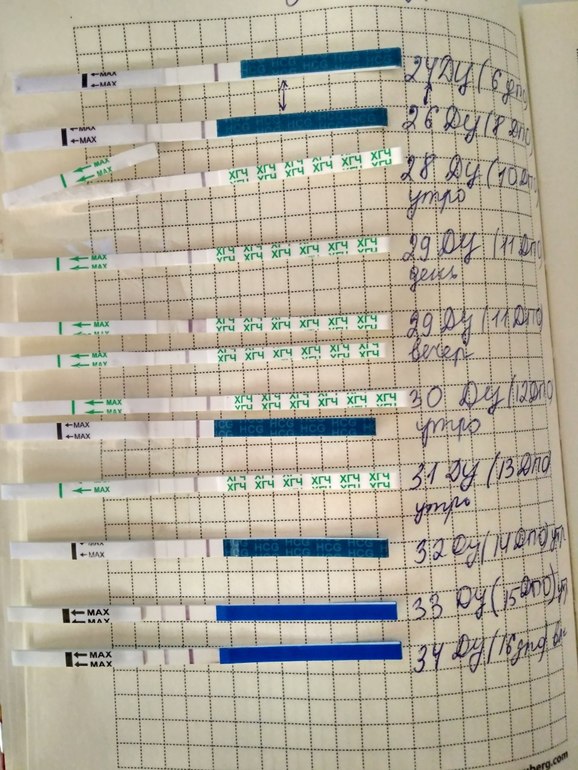 ←MAX HCG HCG 24 ДЦ (6 дпо
MAX
←MAX HCG HCG 26 ДЦ (8 дпо
MAX
MAX ХГЧ ХГЧ ХГЧ ХГЧ ХГЧ ХГЧ 28 ДЦ (10 Дпо
MAX
утро
ХГЧ ХГЧ ХГЧ ХГЧ ХГЧ ХГЧ 29 ДЦ (11 ДПО
←MAX
день
←MAX ХГЧ ХГЧ ХГЧ ХГЧ ХГЧ ХГЧ 29 ДЦ (11 ДПО
MAX
←MAX ХГЧ ХГЧ ХГЧ ХГЧ ХГЧ ХГЧ вечер
MAX
←MAX ХГЧ ХГЧ ХГЧ ХГЧ ХГЧ ХГЧ 30 ДЦ (12 ДПО
MAX
←MAX HCG HCG HCG утро
MAX
←MAX ХГЧ ХГЧ ХГЧ ХГЧ ХГЧ ХГЧ 31 ДЦ (13 ДПО
утро
MAX
←MAX HCG HCG HCG 32 ДЦ (14 ДПО) ут
←MAX 33 ДЦ (15 ДПО) ут
MAX
←MAX 34 ДЦ (16
MAX
berg.com